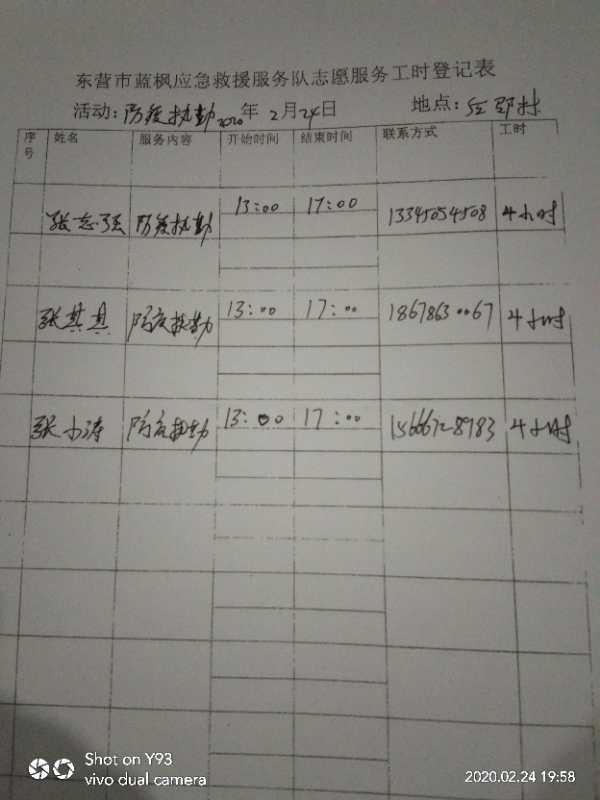 东营市蓝枫应急救援服务队志愿服务工时登记表
活动：防疫执勤 2020年 2月24日 地点：
序号 姓名 服务内容 开始时间 结束时间 联系方式 工时
张志强 防疫执勤 13:00 17:00 13345054508 4小时
张其具 防疫执勤 13:00 17:00 18678630067 4小时
张小涛 防疫执勤 13:00 17:00 15666728983 4小时
Shot on Y93
vivo dual camera
2020.02.24 19:58